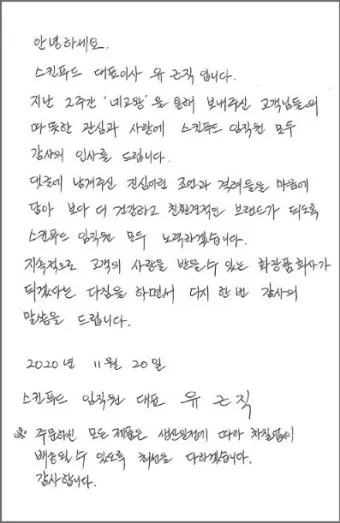 안녕하세요.
스킨푸드 대표이사 유근직 입니다.
지난 2주간 '네고왕' 을 통해 보내주신 고객님들의
따뜻한 관심과 사랑에 스킨푸드 임직원 모두
감사의 인사를 드립니다.
댓글에 남겨주신 진심어린 조언과 격려들을 마음에
담아 보다 더 건강하고 친환경적인 브랜드가 되도록
스킨푸드 임직원 모두 노력하겠습니다.
지속적으로 고객의 사랑을 받을 수 있는 화장품회사가
되겠다는 다짐을 하면서 다시 한 번 감사의
말씀을 드립니다.
2020년 11월 20일
스킨푸드 임직원 대표 유근직
※ 주문하신 모든 제품은 생산일정에 따라 차질없이
배송될 수 있도록 최선을 다하겠습니다.
감사합니다.